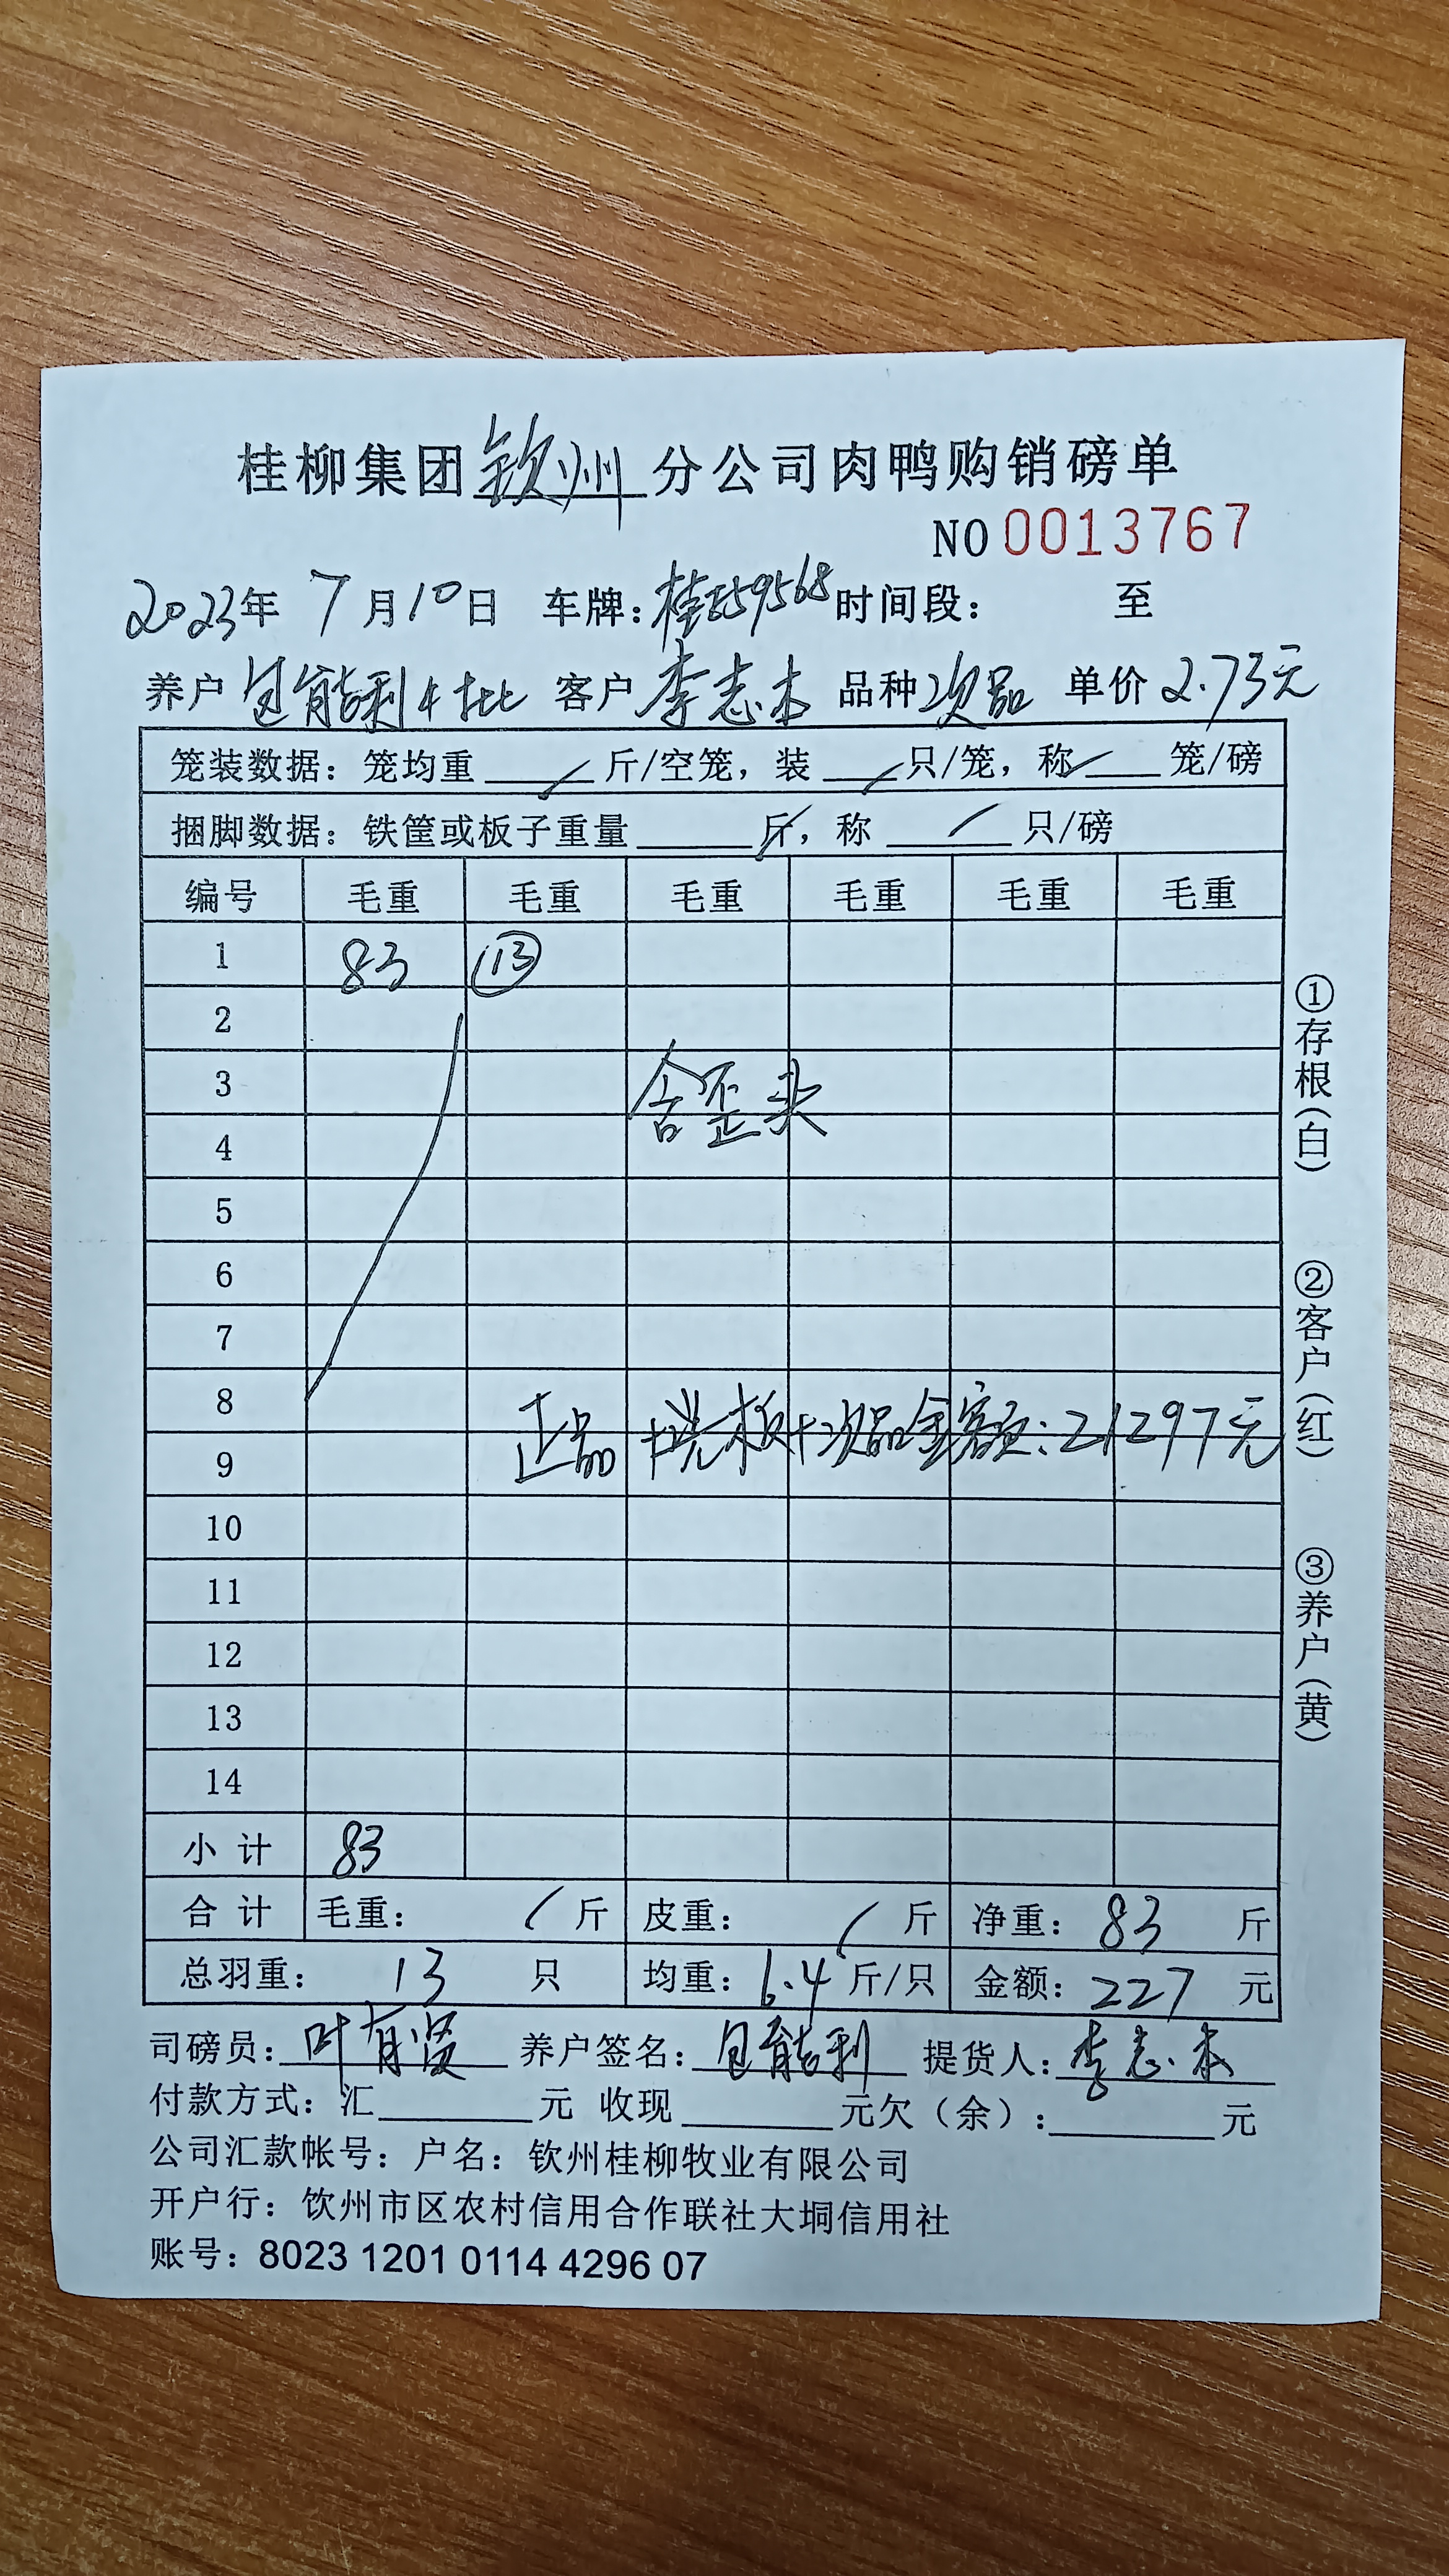 桂柳集团钦州分公司肉鸭购销磅单
NO 0013767
2023年7月10日 车牌：桂E59568 时间段： 至
养户 包能利4批 客户 李志本 品种 次品 单价 2.73元
笼装数据：笼均重 / 斤/空笼，装 / 只/笼，称 / 笼/磅
捆脚数据：铁筐或板子重量 / 斤，称 / 只/磅
编号 毛重 毛重 毛重 毛重 毛重 毛重
1 83 ⑬
2
3 含歪头
4
5
6
7
8 正品+洗板+次品金额：21297元
9
10
11
12
13
14
小计 83
合计 毛重： / 斤 皮重： / 斤 净重：83 斤
总羽重： 13 只 均重：6.4斤/只 金额：227 元
司磅员：叶有贤 养户签名：包能利 提货人：李志本
付款方式：汇 元 收现 元欠（余）： 元
公司汇款帐号：户名：钦州桂柳牧业有限公司
开户行：饮州市区农村信用合作联社大垌信用社
账号：8023 1201 0114 4296 07
①存根（白）
②客户（红）
③养户（黄）